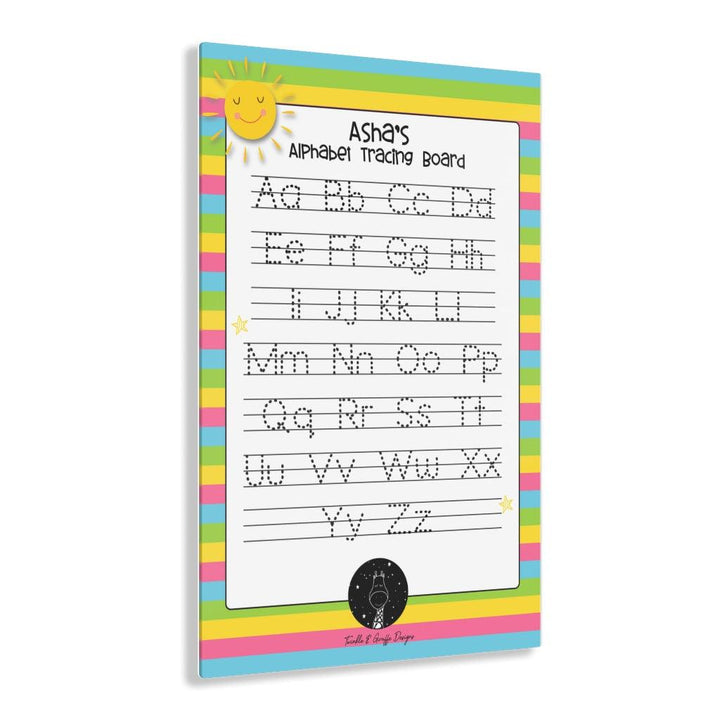 Asha's
Alphabet Tracing Board
Aa Bb Cc Dd
Ee Ff Gg Hh
Ii Jj Kk Ll
Mm Nn Oo Pp
Qq Rr Ss Tt
Uu Vv Ww Xx
Yy Zz
Twinkle & Giraffe Designs